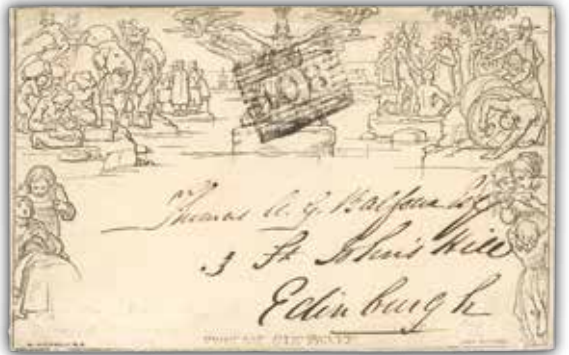 108
Thomas A. G. Balfour Esq
3 St John's Hill
Edinburgh
POSTAGE ONE PENNY